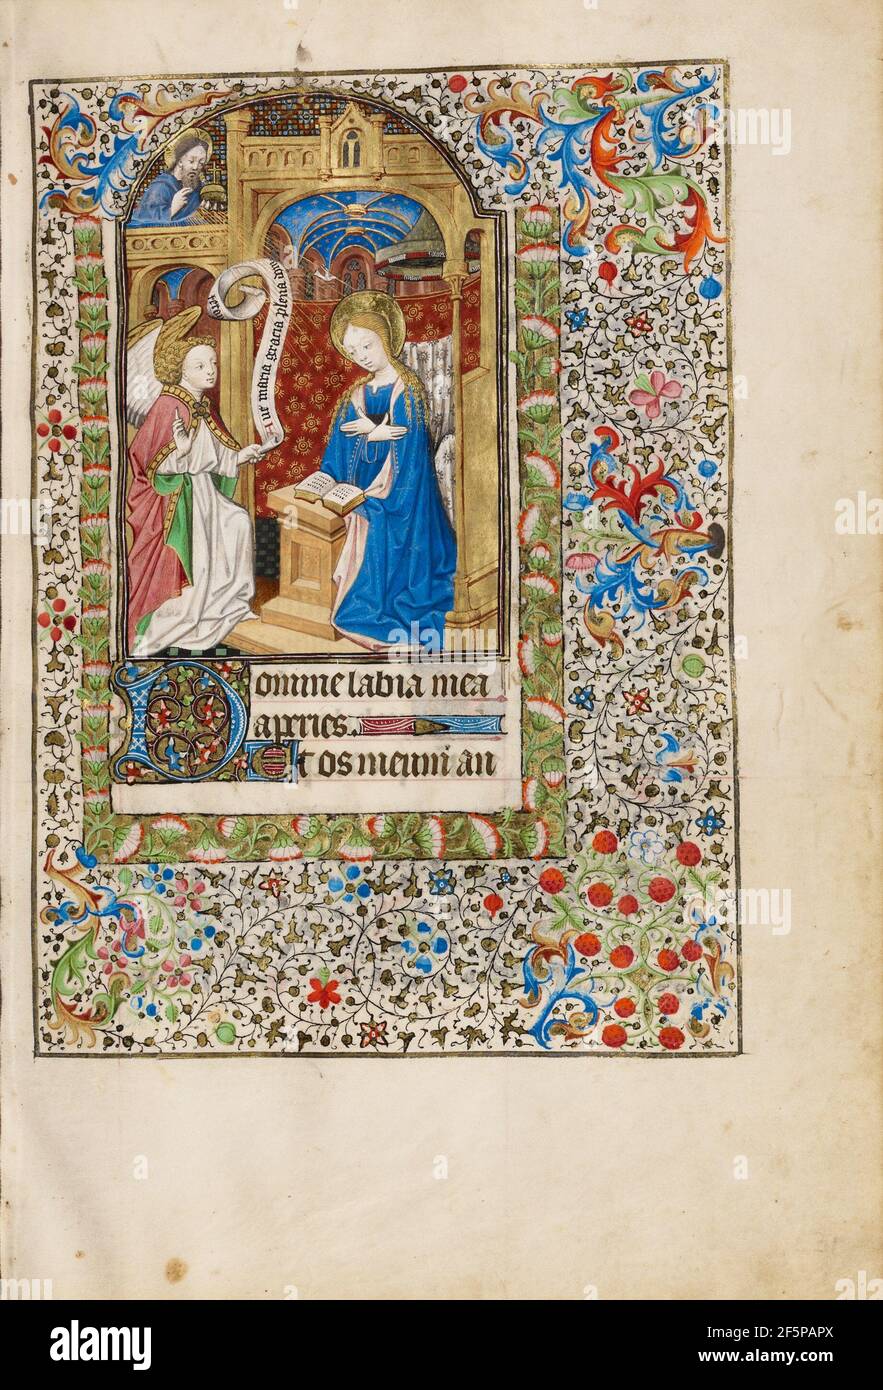 Aue maria gracia plena
Domine labia mea
aperies.
Et os meum an
alamy
Image ID: 2F5PAPX
www.alamy.com